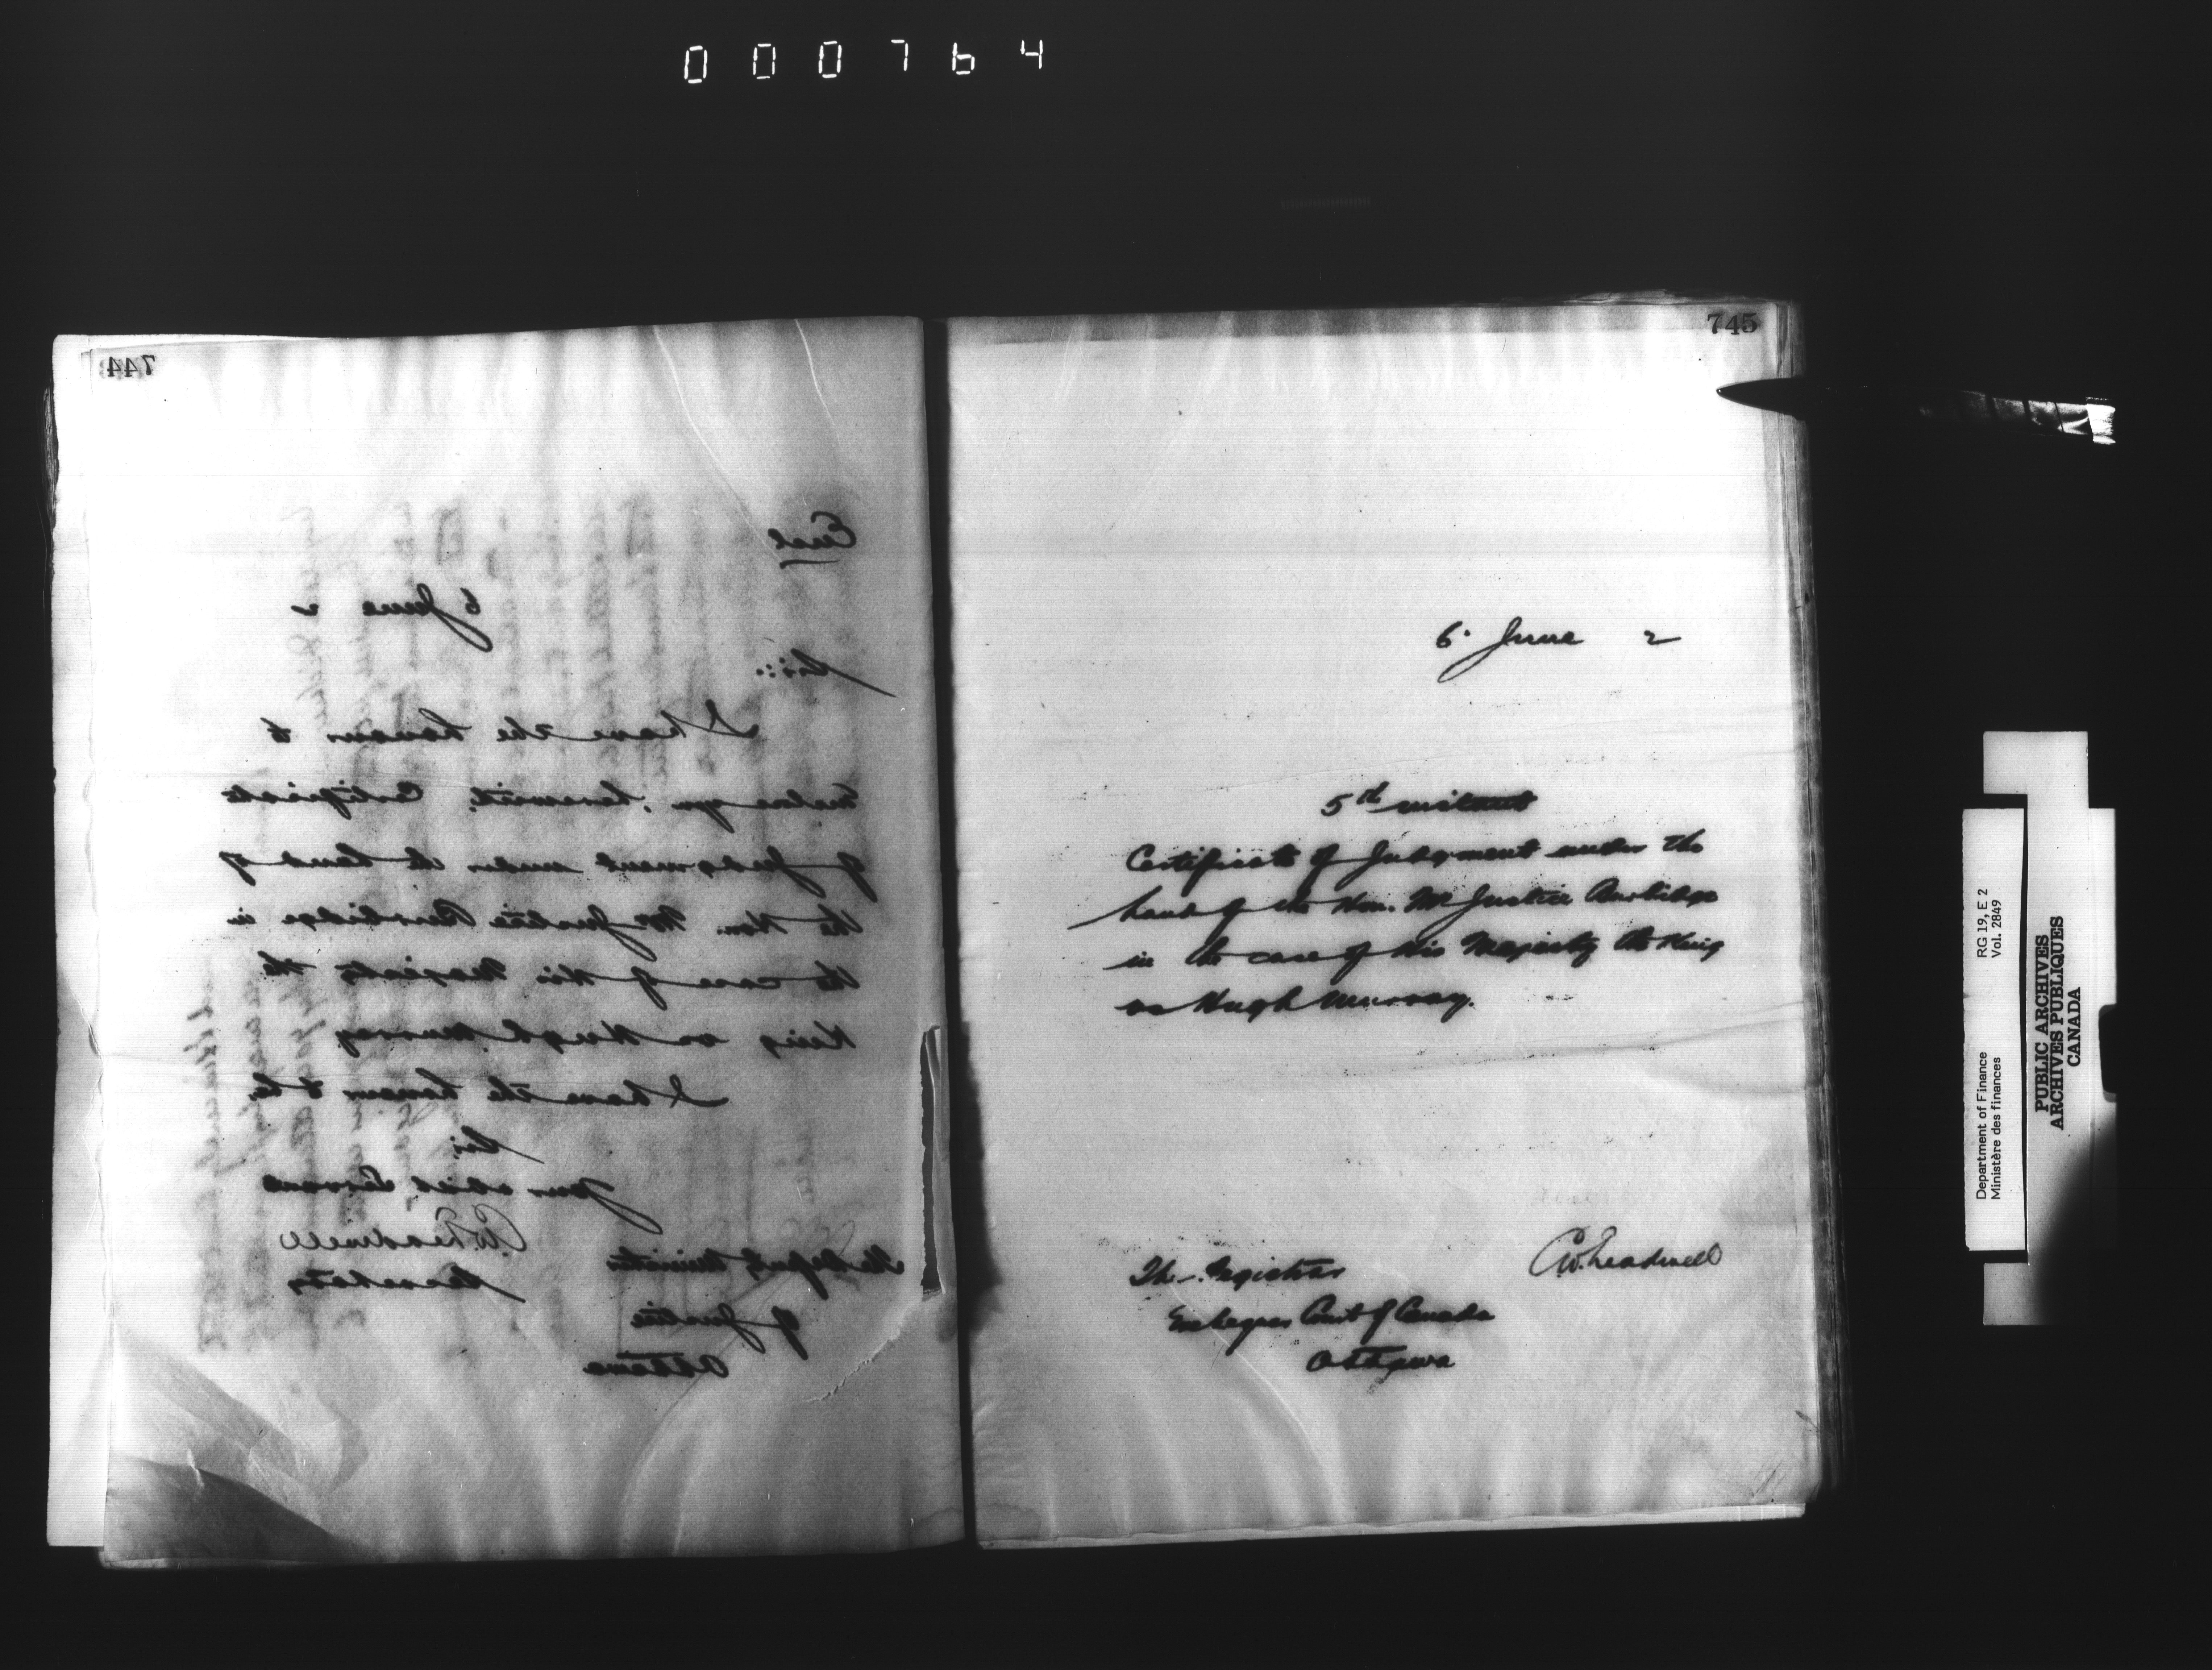 000764
744
Encl
6 June 2
Sir:
I have the honour to
enclose you, herewith, Certificate
of Judgment under the hand of
the Hon. Mr Justice Burbidge in
the case of His Majesty the
King vs Hugh Murray
I have the honour to be,
Sir,
Your obed. Servant
C.W. Treadwell
Secretary
The Deputy Minister
of Justice
Ottawa
745
6 June 2
5th instant
Certificate of Judgment under the
hand of the Hon. Mr Justice Burbidge
in the case of His Majesty the King
vs Hugh Murray.
C.W. Treadwell
The Registrar
Exchequer Court of Canada
Ottawa
Department of Finance RG 19, E 2
Ministère des finances Vol. 2849
PUBLIC ARCHIVES
ARCHIVES PUBLIQUES
CANADA